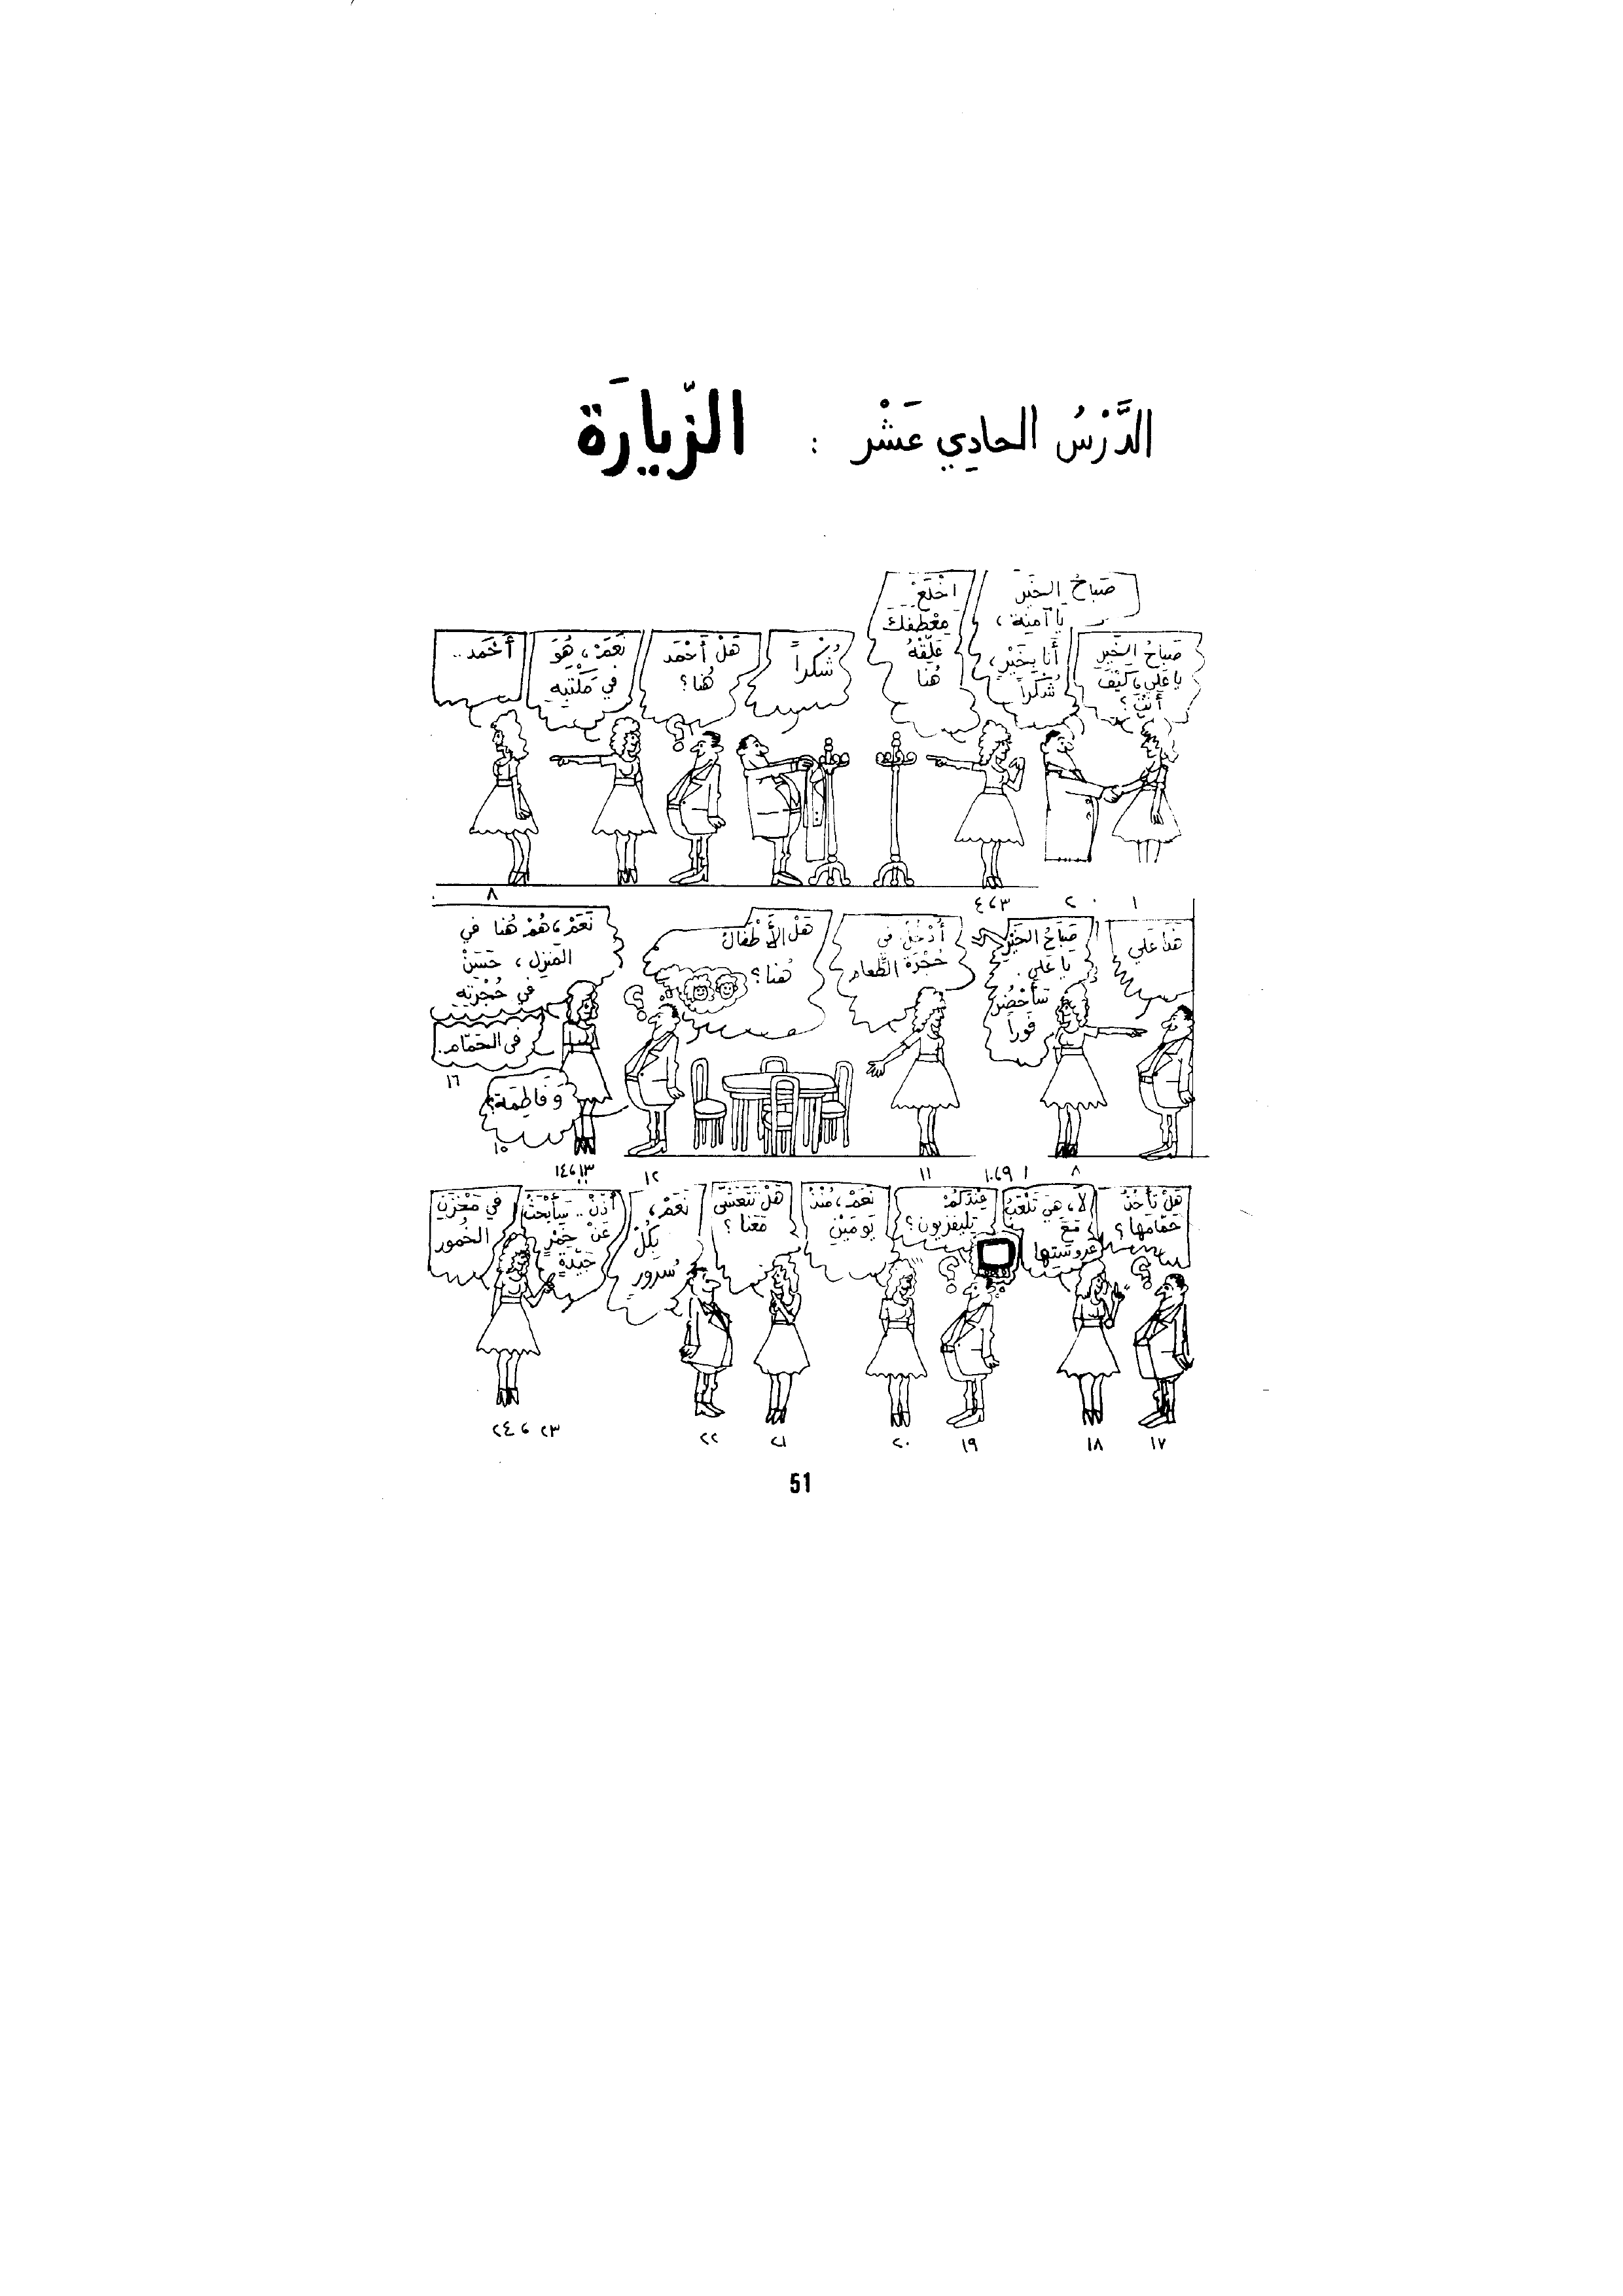 الدَّرْسُ الحادِي عَشْر : الزّيارَة
صَباحُ الخَيْرِ
يا عَلي، كَيْفَ
أَنْتَ؟
صَباحُ الخَيْر
يا آمِنَة،
أَنا بِخَيْرٍ،
شُكْراً
اخْلَعْ
مِعْطَفَكَ
عَلِّقْهُ
هُنا
شُكْراً
هَلْ أَحْمَد
هُنا؟
نَعَمْ، هُوَ
في مَكْتَبِهِ
أَحْمَد..
١
٢
٣ ، ٤
٨
هَذا عَلي
صَباحُ الخَيْرِ
يا عَلي.
سَأَحْضُرُ
فَوْراً
أُدْخُلْ في
حُجْرَة الطَّعام
هَلْ الأَطْفالُ
هُنا؟
نَعَمْ، هُمْ هُنا في
المَنزِل، حَسَنْ
في حُجْرَتِهِ
وَفاطِمَة؟
في الحَمّام.
٨
٩ ، ١٠
١١
١٢
١٣ ، ١٤
١٥
١٦
هَلْ تَأخُذُ
حَمّامها؟
لا، هِيَ تَلْعَبُ
مَعَ
عَروسَتِها
عِنْدَكُمْ
تِليفزيون؟
نَعَمْ، مُنْذُ
يَومَيْنِ
هَلْ تَتَعَشّى
مَعَنا؟
نَعَمْ،
بِكُلِّ
سُرورٍ
أَذَنْ.. سَأَبْحَثُ
عَنْ خَمْرٍ
جَيِّدَةٍ
في مَخْزَنِ
الخُمور
١٧
١٨
١٩
٢٠
٢١
٢٢
٢٣ ، ٢٤
51